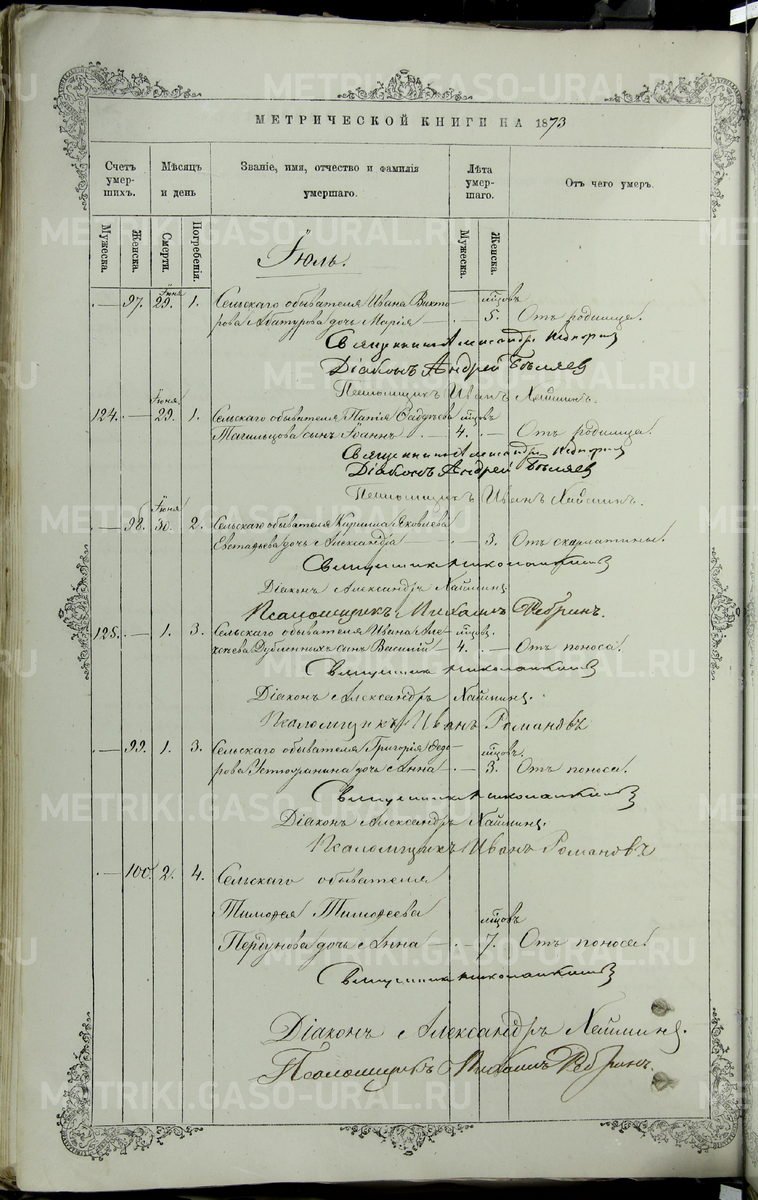 МЕТРИЧЕСКОЙ КНИГИ НА 1873
Счетъ умер-шихъ.
Мѣсяцъ и день
Званіе, имя, отчество и фамилія умершаго.
Лѣта умер-шаго.
Отъ чего умеръ.
Мужеска.
Женска.
Смерти.
Погребенія.
Мужеска.
Женска.
Іюль.
Іюня мѣсцовъ
— 97. 29. 1. Сельскаго обывателя Ивана Викто-
рова Абатурова дочь Марія — 5. Отъ родимца.
Священникъ Александръ
Діаконъ Андрей Бѣляев
Псаломщикъ Иванъ Хаймин.
Іюня
124. — 29. 1. Сельскаго обывателя Папія Фадѣева мѣсцовъ
Тагильцова сынъ Іоаннъ. — 4. — Отъ родимца.
Священникъ Александръ
Діаконъ Андрей Бѣляев
Псаломщикъ Иванъ Хаймин.
Іюня
— 98. 30. 2. Сельскаго обывателя Кирилла Яковлева
Евстафьева дочь Александра — 3. Отъ скарлатины.
Священникъ
Діаконъ Александръ Хайминъ.
Псаломщикъ Михаилъ Ребринъ.
125. — 1. 3. Сельскаго обывателя Ивана Але- мѣсцов.
ксѣева Дубленныхъ сынъ Василій — 4. — Отъ поноса.
Священникъ
Діаконъ Александръ Хайминъ.
Псаломщикъ Иванъ Романовъ
— 99. 1. 3. Сельскаго обывателя Григорія Ѳедо- мѣсцов.
рова Устюжанина дочь Анна — 3. Отъ поноса.
Священникъ
Діаконъ Александръ Хайминъ.
Псаломщикъ Иванъ Романовъ
— 100. 2. 4. Сельскаго обывателя
Тимоѳея Тимоѳеева мѣсцовъ
Першунова дочь Анна — 7. Отъ поноса.
Священникъ
Діаконъ Александръ Хайминъ.
Псаломщикъ Михаилъ Ребринъ.
METRIKI.GASO-URAL.RU